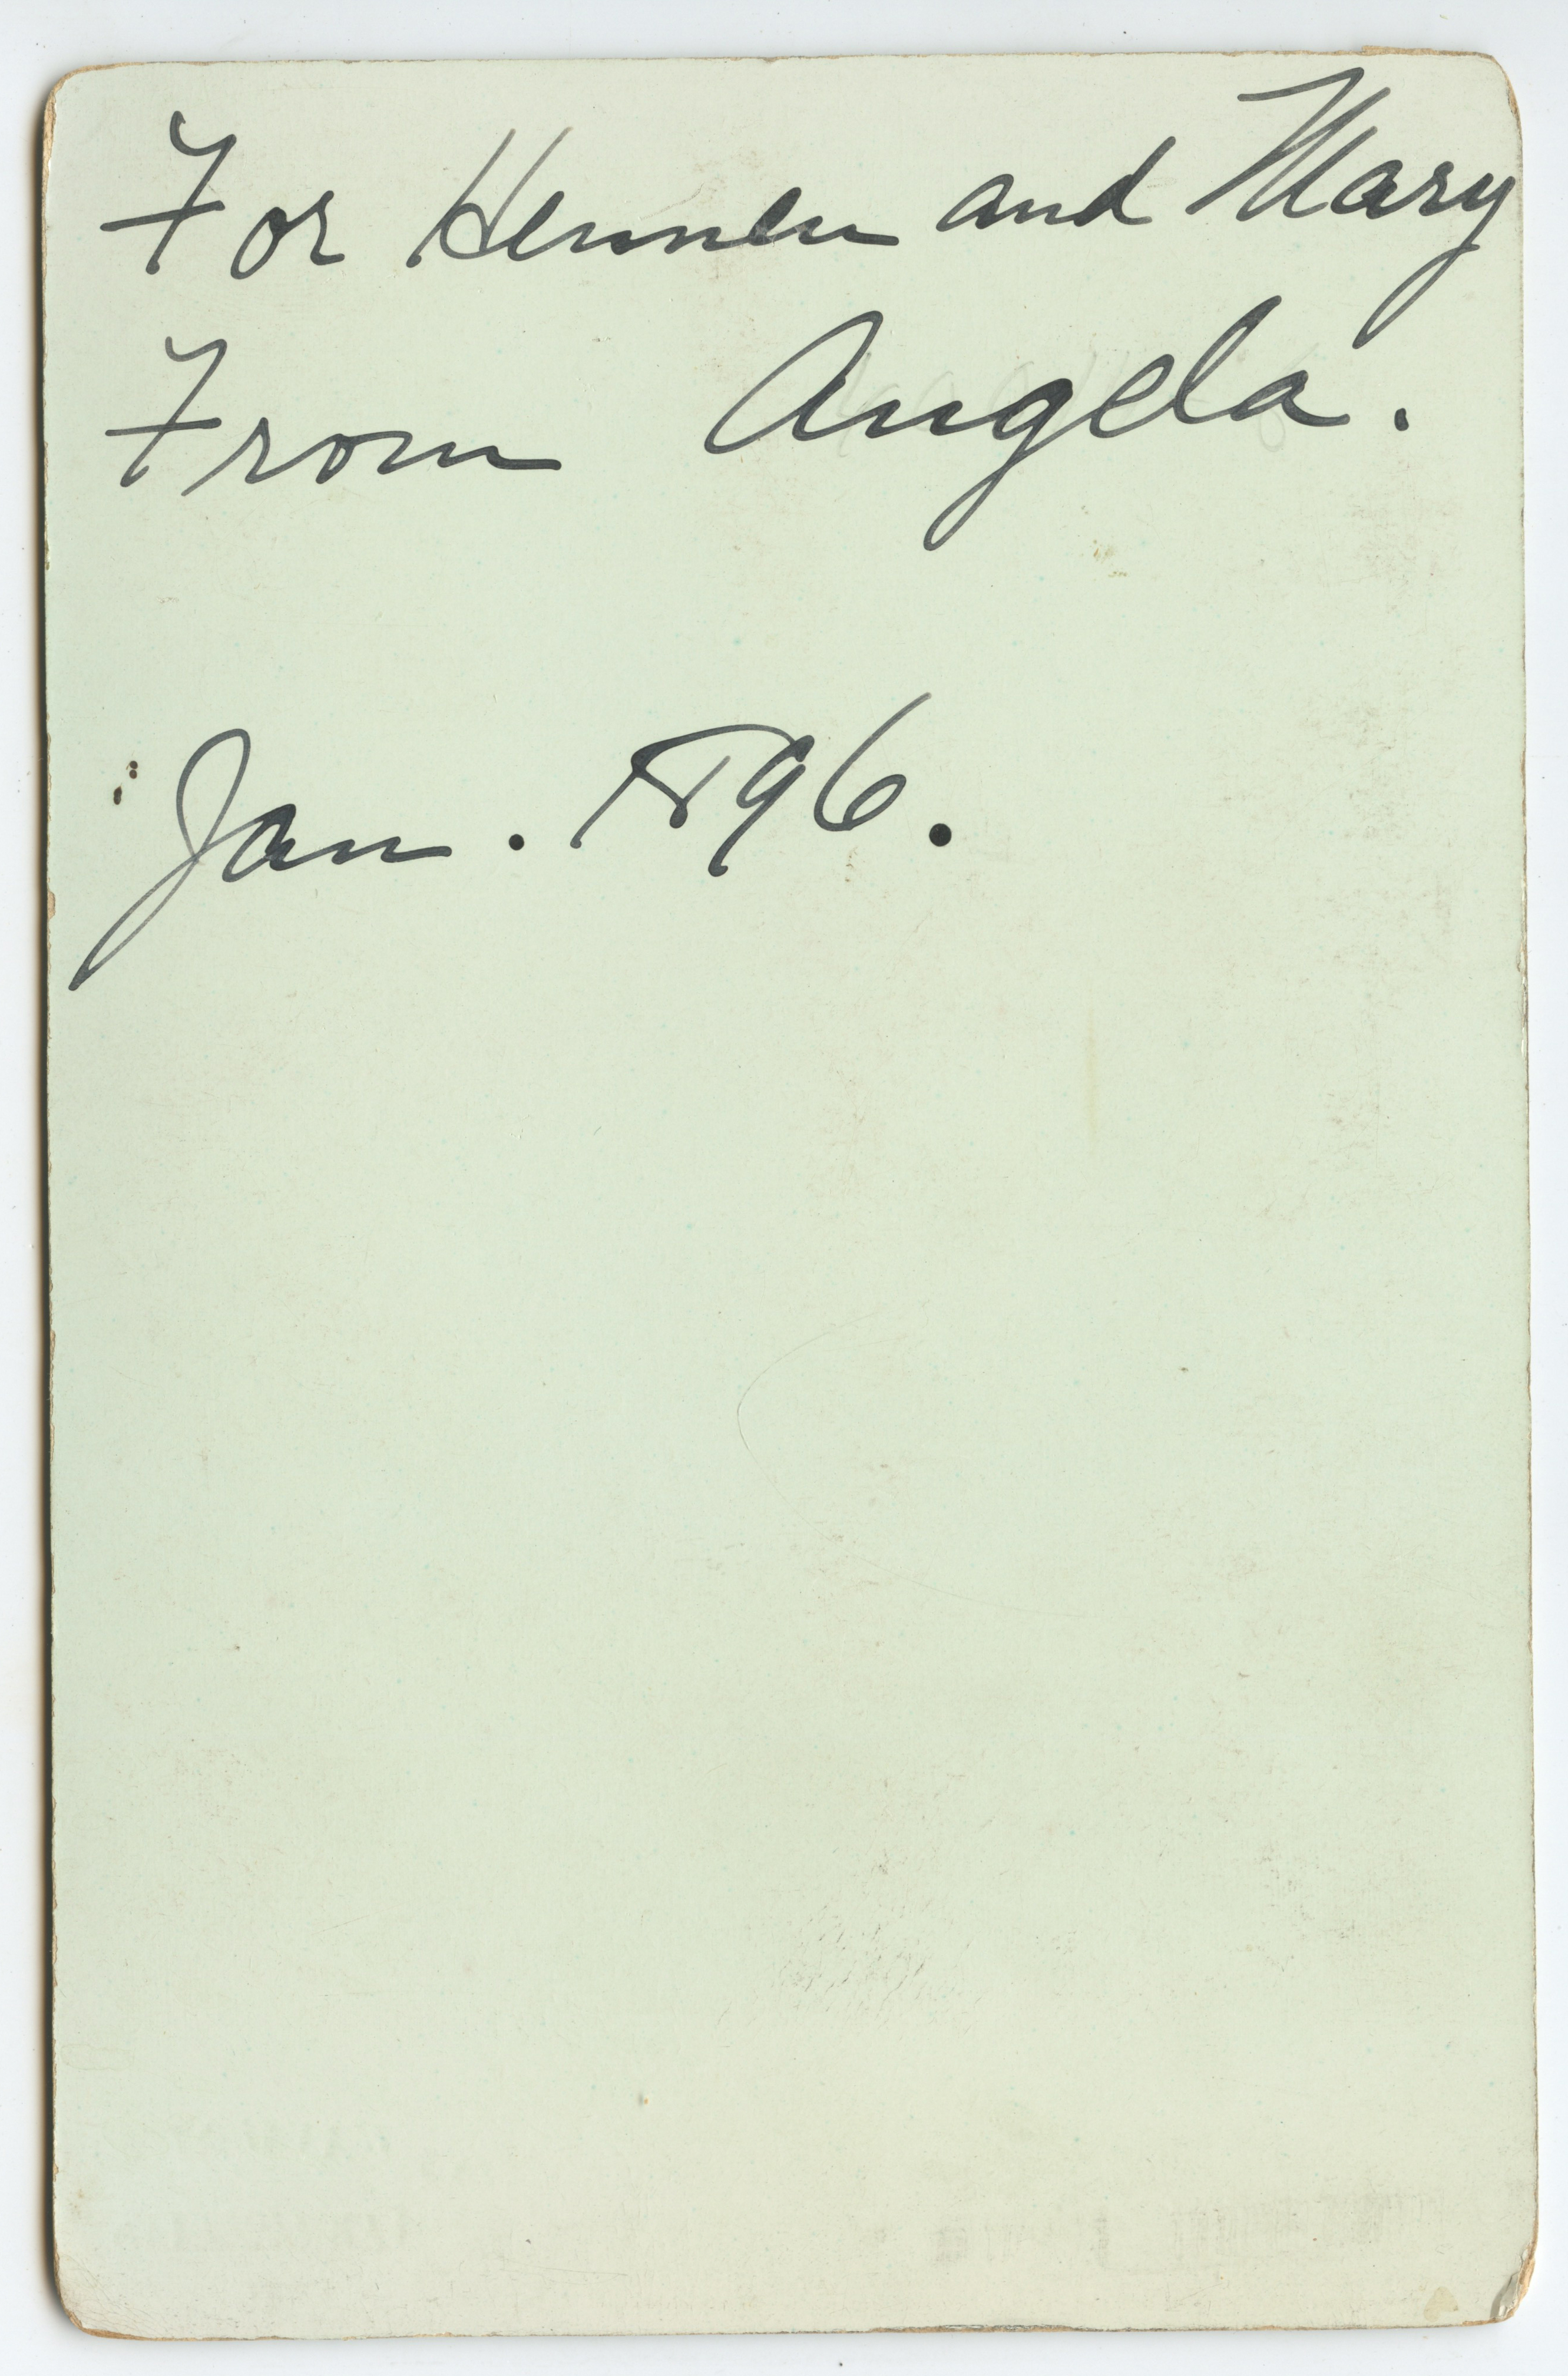 For Hennen and Mary
From Angela.
Jan. 1896.